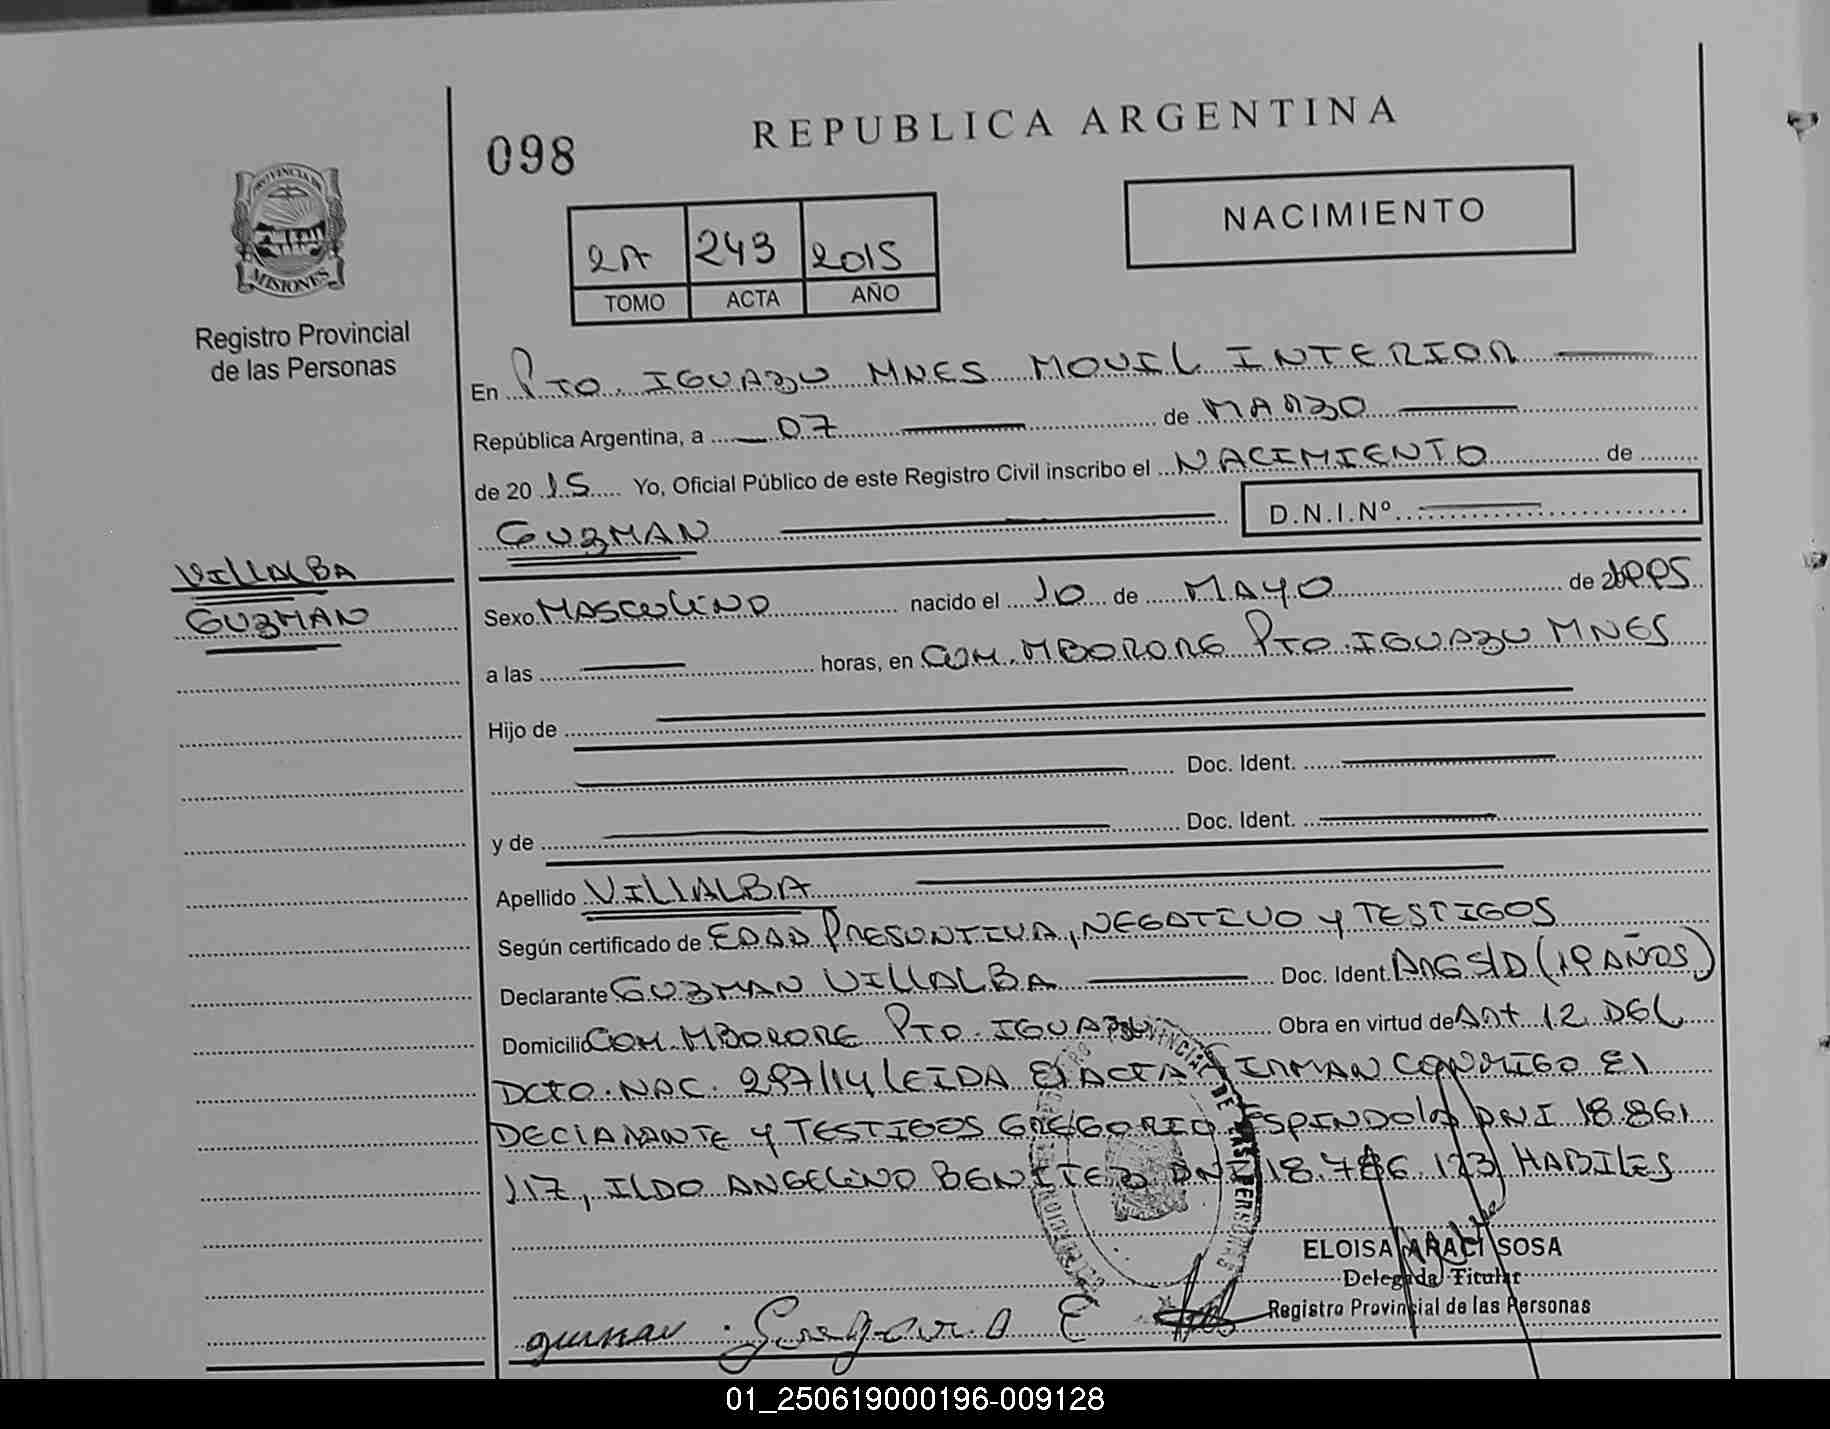 098
REPUBLICA ARGENTINA
PROVINCIA DE
MISIONES
Registro Provincial
de las Personas
2A 243 2015
TOMO ACTA AÑO
NACIMIENTO
En Pto. IGUAZU MNES MOVIL INTERIOR
República Argentina, a 07 de MARZO
de 2015 Yo, Oficial Público de este Registro Civil inscribo el NACIMIENTO de
GUZMAN D.N.I.Nº
VILLALBA
GUZMAN
Sexo MASCULINO nacido el 10 de MAYO de 1995
a las horas, en COM. MBORORE Pto. IGUAZU MNES
Hijo de
Doc. Ident.
y de Doc. Ident.
Apellido VILLALBA
Según certificado de EDAD PRESUNTIVA, NEGATIVO y TESTIGOS
Declarante GUZMAN VILLALBA Doc. Ident. ARG S/D (19 AÑOS)
Domicilio COM. MBORORE Pto. IGUAZU Obra en virtud de Art 12 DEL
DCTO. NAC. 297/14 LEIDA El ACTA FIRMAN CONMIGO El
DECLARANTE y TESTIGOS GREGORIO ESPINDOLA DNI 18.861
117, ILDO ANGELINO BENITEZ DNI 18.786.123 HABILES
ELOISA ARACI SOSA
Delegada Titular
Registro Provincial de las Personas
Gregorio E
01_250619000196-009128